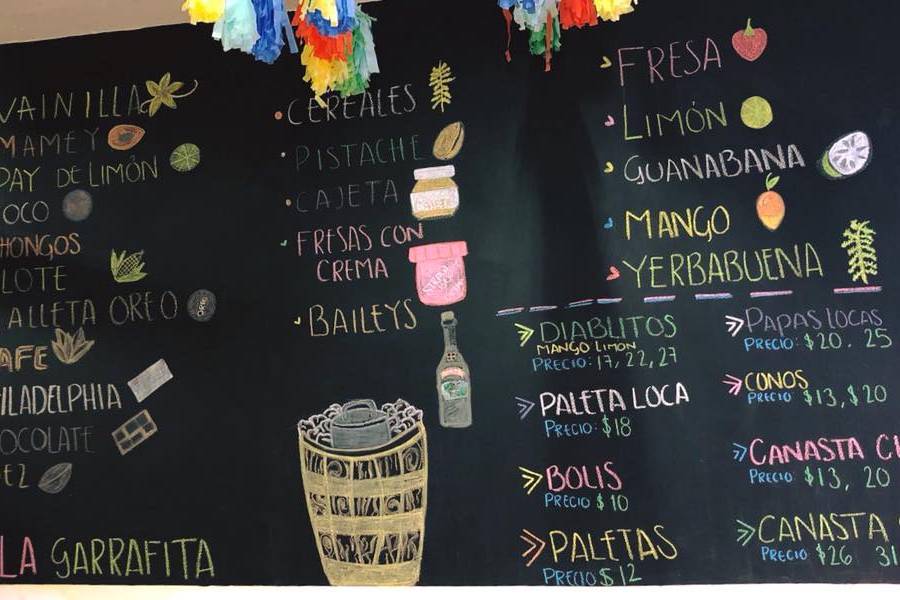 VAINILLA
MAMEY
PAY DE LIMÓN
OCO
HONGOS
LOTE
ALLETA OREO
OREO
AFE
HILADELPHIA
OCOLATE
EZ
LA GARRAFITA
CEREALES
PISTACHE
CAJETA
CAJETA
FRESAS CON
CREMA
BAILEYS
FRESA
LIMÓN
GUANABANA
MANGO
YERBABUENA
DIABLITOS
MANGO LIMON
PRECIO: 17, 22, 27
PALETA LOCA
PRECIO: $18
BOLIS
PRECIO $10
PALETAS
PRECIO $12
PAPAS LOCAS
PRECIO: $20. 25
CONOS
PRECIO $13, $20
CANASTA
PRECIO: $13, 20
CANASTA
PRECIO $26 31